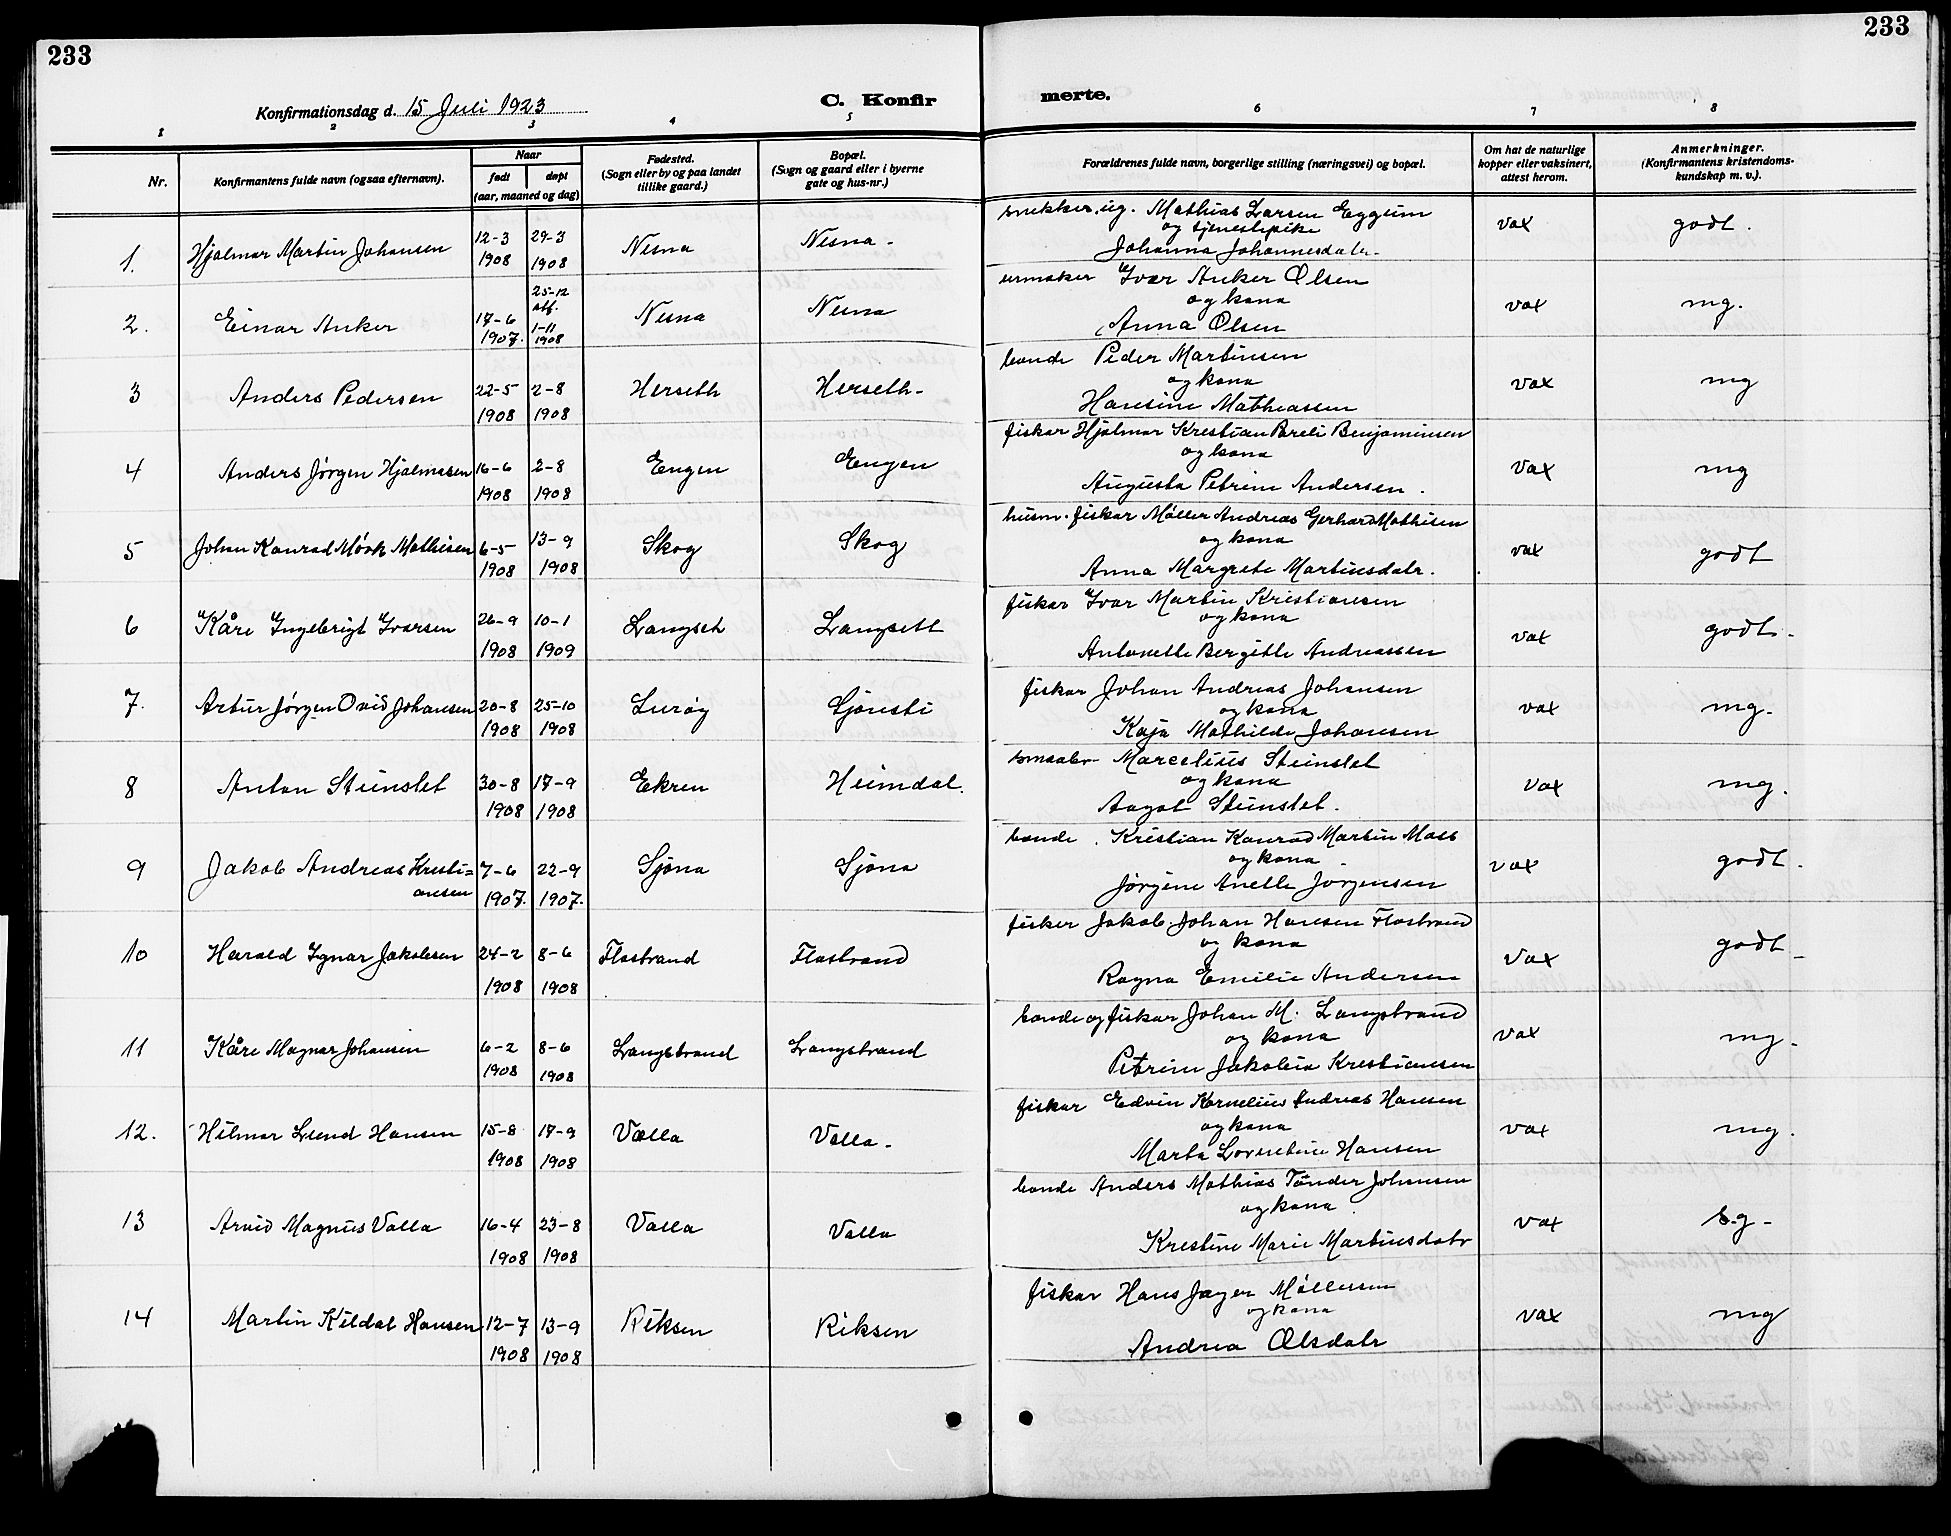 233
233
Konfirmationsdag d. 15 Juli 1923
C. Konfir
merte.
1 2 3 4 5 6 7 8
Nr.
Konfirmantens fulde navn (ogsaa efternavn).
Naar
født
døpt
(aar, maaned og dag)
Fødested.
(Sogn eller by og paa landet
tillike gaard.)
Bopæl.
(Sogn og gaard eller i byerne
gate og hus-nr.)
Forældrenes fulde navn, borgerlige stilling (næringsvei) og bopæl.
Om hat de naturlige
kopper eller vaksinert,
attest herom.
Anmerkninger.
(Konfirmantens kristendoms-
kundskap m. v.).
snekker, ug. Mathias Larsen Eggum
og tjenestepike
Johanna Johannesdatr.
1. Hjalmar Martin Johansen 12-3 1908 29-3 1908 Nesna Nesna - vax godt.
urmaker Ivar Anker Olsen
og kona
Anna Olsen
2. Einar Anker 17-6 1907. 25-12 stf. 1-11 1908 Nesna Nesna vax mg.
bonde Peder Martinsen
og kona
Hansine Mathiassen
3 Anders Pedersen 22-5 1908 2-8 1908 Herseth Herseth- vax mg
fiskar Hjalmar Kristian Pareli Benjaminsen
og kona
Augusta Petrine Andersen.
4 Anders Jørgen Hjalmasen 16-6 1908 2-8 1908 Engen Engen vax mg
husm. fiskar Møller Andreas Gerhard Mathisen
og kona
Anna Margrete Martinsdatr.
5 Johan Konrad Mørk Mathisen 6-5 1908 13-9 1908 Skog Skog vax godt
fiskar Ivar Martin Kristiansen
og kona
Antonette Bergitte Andreassen
6 Kåre Ingebrigt Ivarsen 26-9 1908 10-1 1909 Langset Langsett vax godt.
fiskar Johan Andreas Johansen
og kona
Kaja Mathilde Johansen
7. Artur Jørgen Ovid Johansen 20-8 1908 25-10 1908 Lurøy vax mg.
Marcelius Steinslet
og kona
Aagot Steinslet.
8 Anton Steinslet 30-8 1908 17-9 1908 Ekren Heimdal. vax mg.
bonde. Kristian Konrad Martin
og kona
Jørgine Anette Jørgensen
9 Jakob Andreas Kristi=
ansen 7-6 1907. 22-9 1907. Sjona Sjona vax godt.
fisker Jakob Johan Hansen Flostrand
og kona
Ragna Emilie Andersen
10 Harald Ignar Jakobsen 24-2 1908 8-6 1908 Flostrand Flostrand vax godt
bonde og fiskar Johan M. Langstrand
og kona
Petrine Jakobia Kristiansen
11 Kåre Magnar Johansen 6-2 1908 8-6 1908 Langstrand Langstrand vax mg.
fiskar Edvin Kornelius Andreas Hansen
og kona
Marta Lovertine Hansen
12. Hilmar Lund Hansen 15-8 1908 17-9 1908 Valla Valla - vax mg.
bonde Anders Mathias Tønder Johansen
og kona
Kristine Marie Martinsdatr
13 Arvid Magnus Valla 16-4 1908 23-8 1908 Valla Valla vax s.g-
fiskar Hans Jæger Møllersen
og kona
Andrea Olsdatr
14 Martin Kildal Hansen 12-7 1908 13-9 1908 Riksen Riksen vax mg